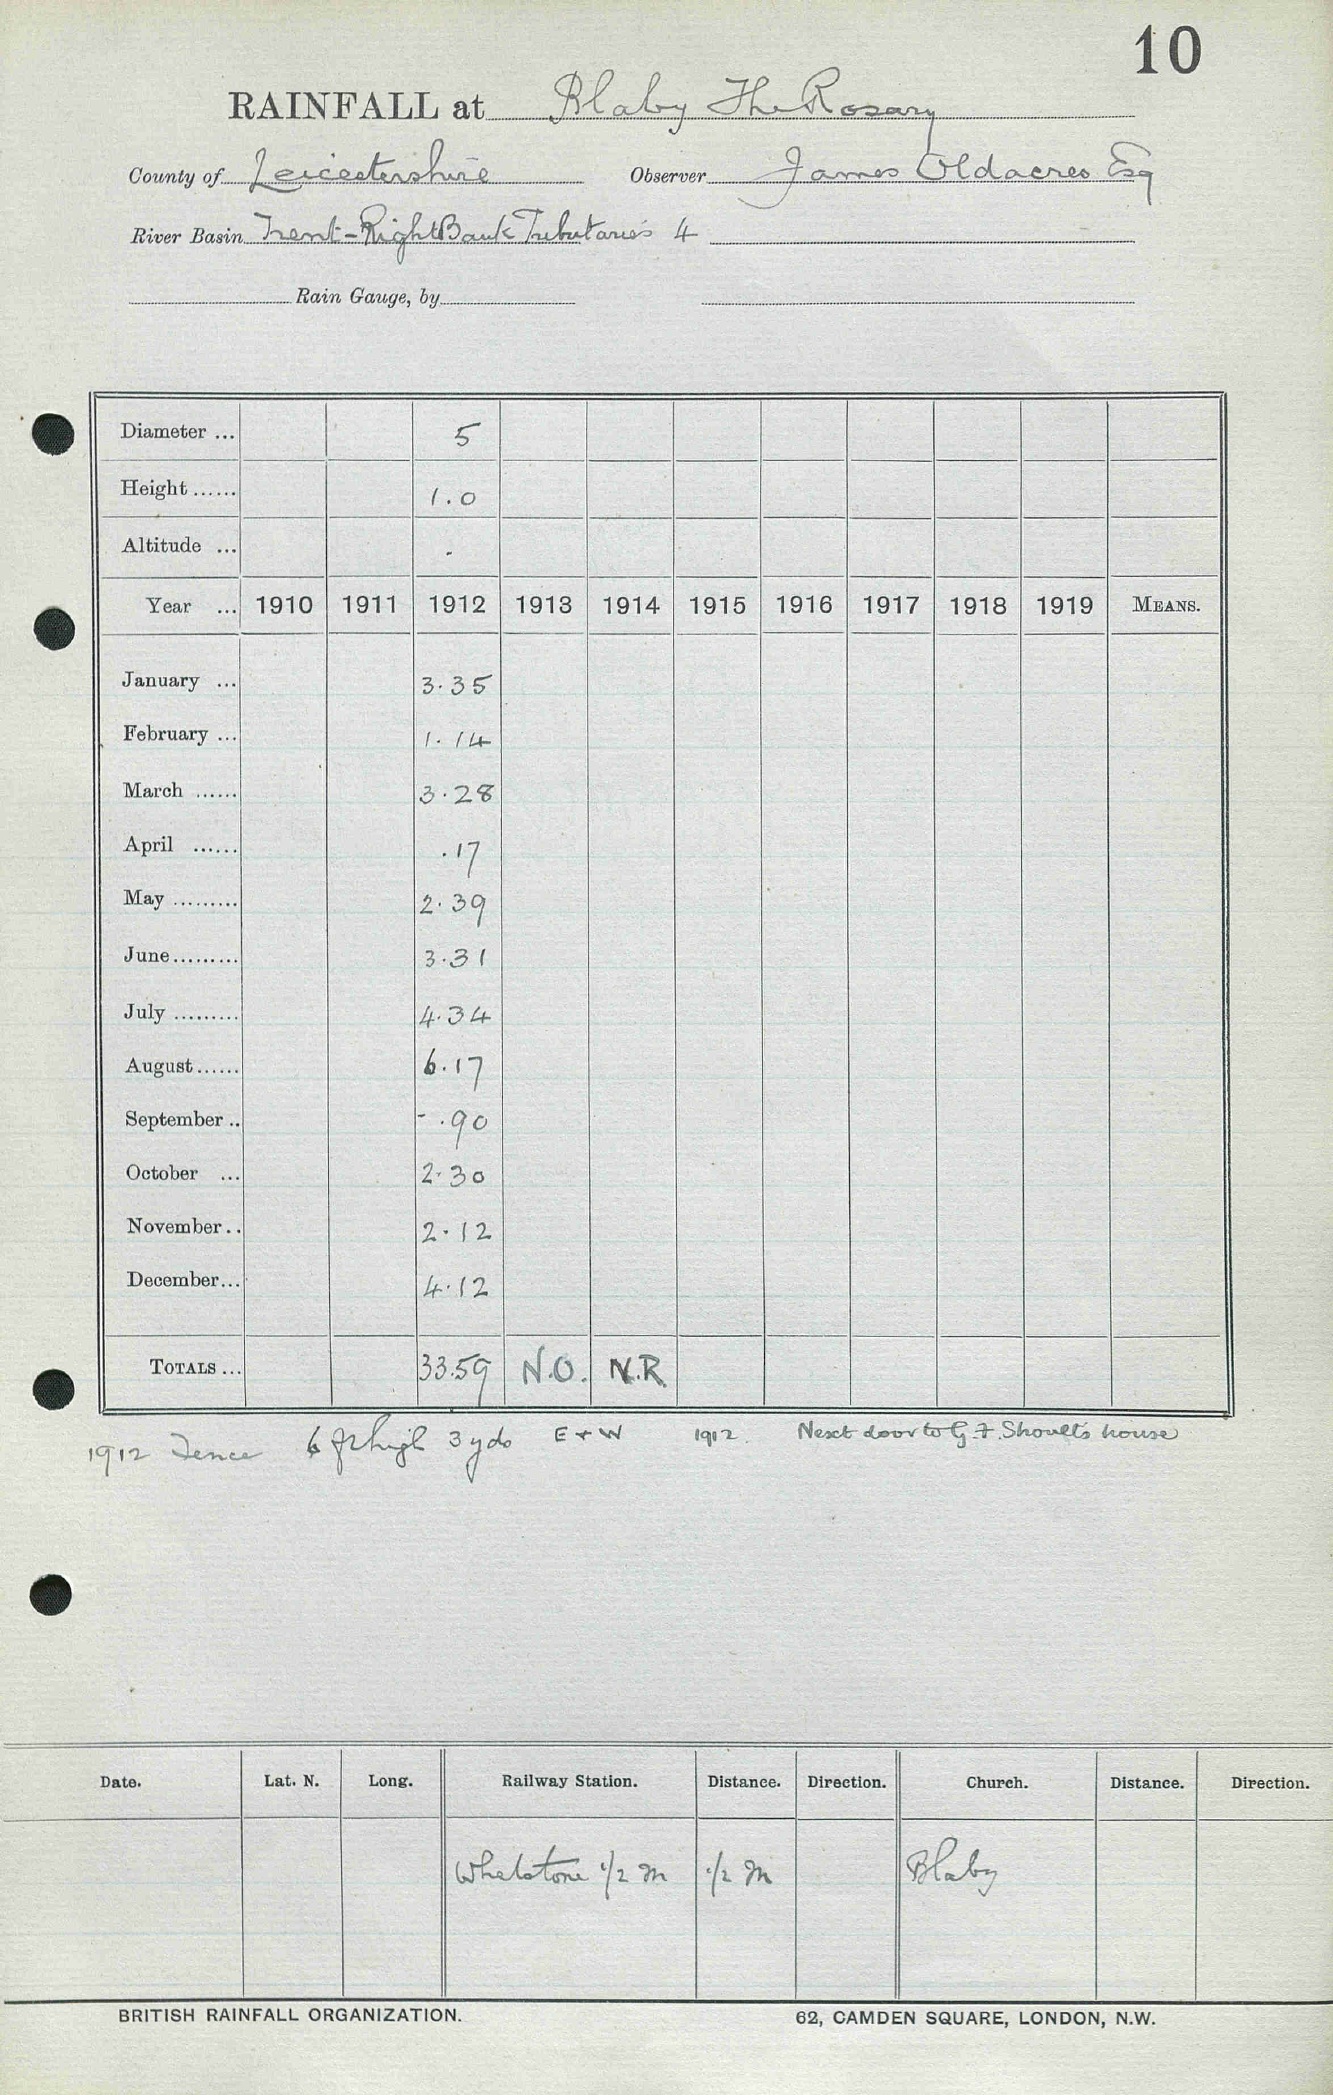 10
RAINFALL at Blaby The Rosary
County of Leicestershire Observer James Oldacres Esq
River Basin Trent-Right Bank Tributaries 4
Rain Gauge, by
Diameter ... 5
Height ...... 1.0
Altitude ... -
Year ... 1910 1911 1912 1913 1914 1915 1916 1917 1918 1919 MEANS.
January ... 3.35
February ... 1.14
March ...... 3.28
April ...... .17
May ......... 2.39
June ......... 3.31
July ......... 4.34
August ...... 6.17
September .. - .90
October ... 2.30
November .. 2.12
December ... 4.12
TOTALS ... 33.59 N.O. N.R.
1912 Fence 6 ft high 3 yds E + W 1912. Next door to G. F. Shoults house
Date. Lat. N. Long. Railway Station. Distance. Direction. Church. Distance. Direction.
Whetstone 1/2 m 1/2 m Blaby
BRITISH RAINFALL ORGANIZATION. 62, CAMDEN SQUARE, LONDON, N.W.